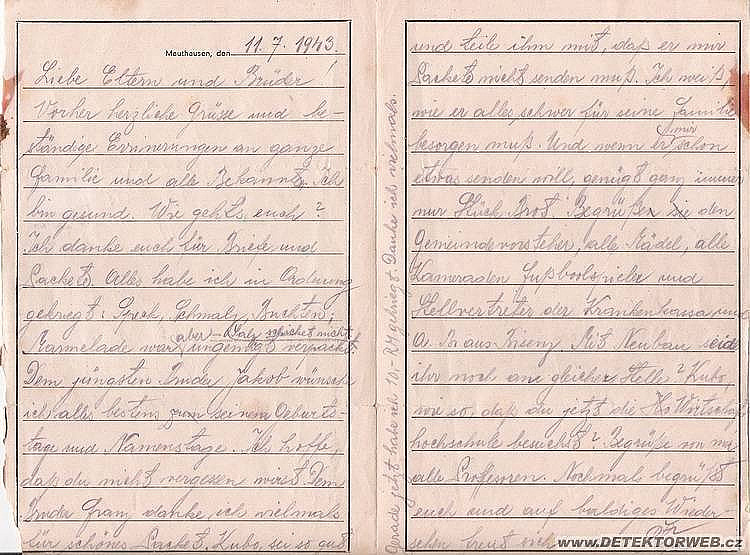 Mauthausen, den 11. 7. 1943.
Liebe Eltern und Brüder!
Vorher herzliche Grüsse und be-
ständige Errinerungen an ganze
Familie und alle Bekannte. Ich
bin gesund. Wie gehts euch?
Ich danke euch für Briefe und
Packets. Alles habe ich in Ordnung
gekriegt: Speck, Schmalz, Buchten;
aber - Salz schicket nicht!
Marmelade war ungengt verpackt.
Dem jüngsten Bruder Jakob wünsche
ich alles bestens zum seinem Geburts-
tage und Namenstage. Ich hoffe,
daß du nicht vergessen wirst. Dem
Bruder Franz danke ich vielmals
für schönes Packet. Kubo, sei so gut
Gerade jetzt habe ich 10,- RM gekriegt. Danke ich vielmals.
und teile ihm mit, daß er mir
Packets nicht senden muß. Ich weiß,
wie er alles schwer für seine Familie
besorgen muß. Und wenn er mir schon
etwas senden will, genügt ganz immer
nur Stück Brot. Begrüßen sie den
Gemeindevorsteher, alle Mädel, alle
Kameraden Fussboolspieler und
Stellvertreter der Krankenkassa und
a. B. aus Bisenz. Mit Neubau seid
ihr noch an gleicher Stelle? Kubo,
wie so, daß du jetzt die Wirtschaft
hochschule besuchst? Begrüße von mir
alle Professoren. Nochmal begrüßt
euch und auf baldiges Wieder-
sehen freut sich
www.DETEKTORWEB.cz